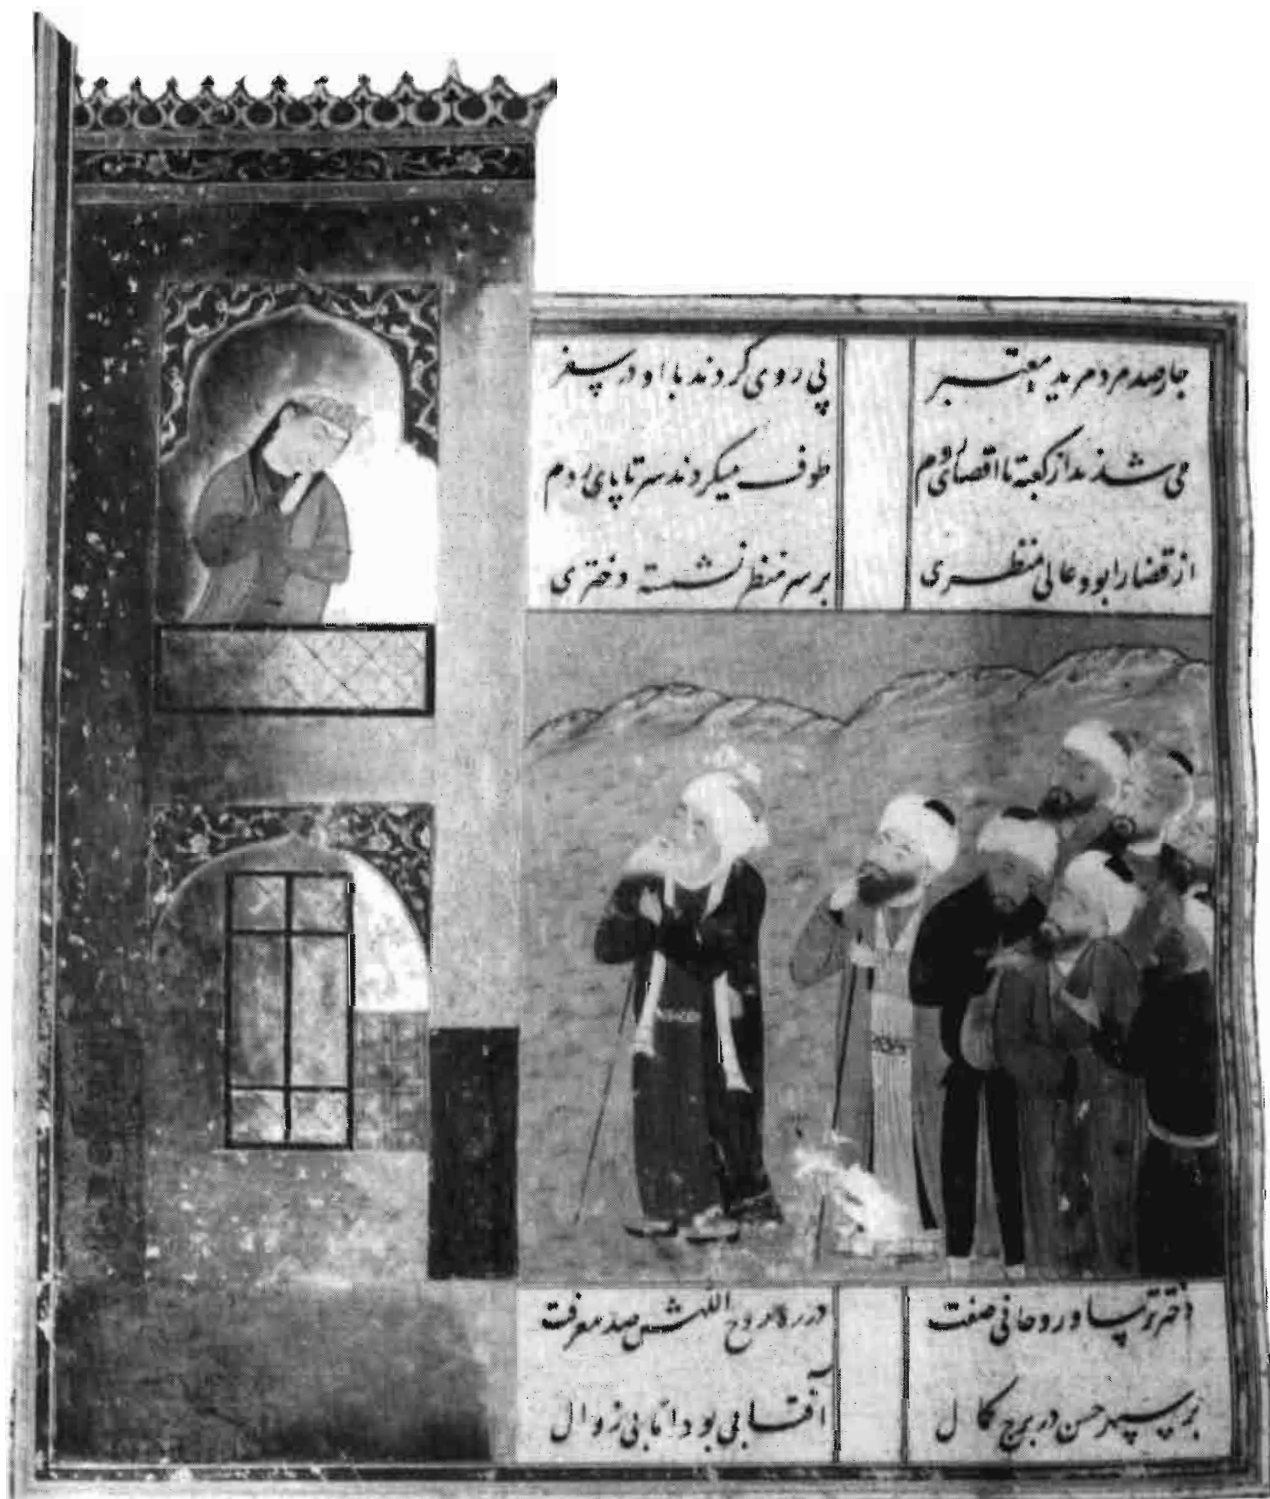 چارصد مرد مرید معتبر
پی روی کردند با او در سفر
می شدند از کعبه تا اقصای روم
طوف میکردند سر تا پای روم
از قضا را بود عالی منظری
بر سر منظر نشسته دختری
دختر ترسا و روحانی صفت
در ره روح اللهش صد معرفت
بر سپهر حسن در برج کمال
آفتابی بود اما بی زوال